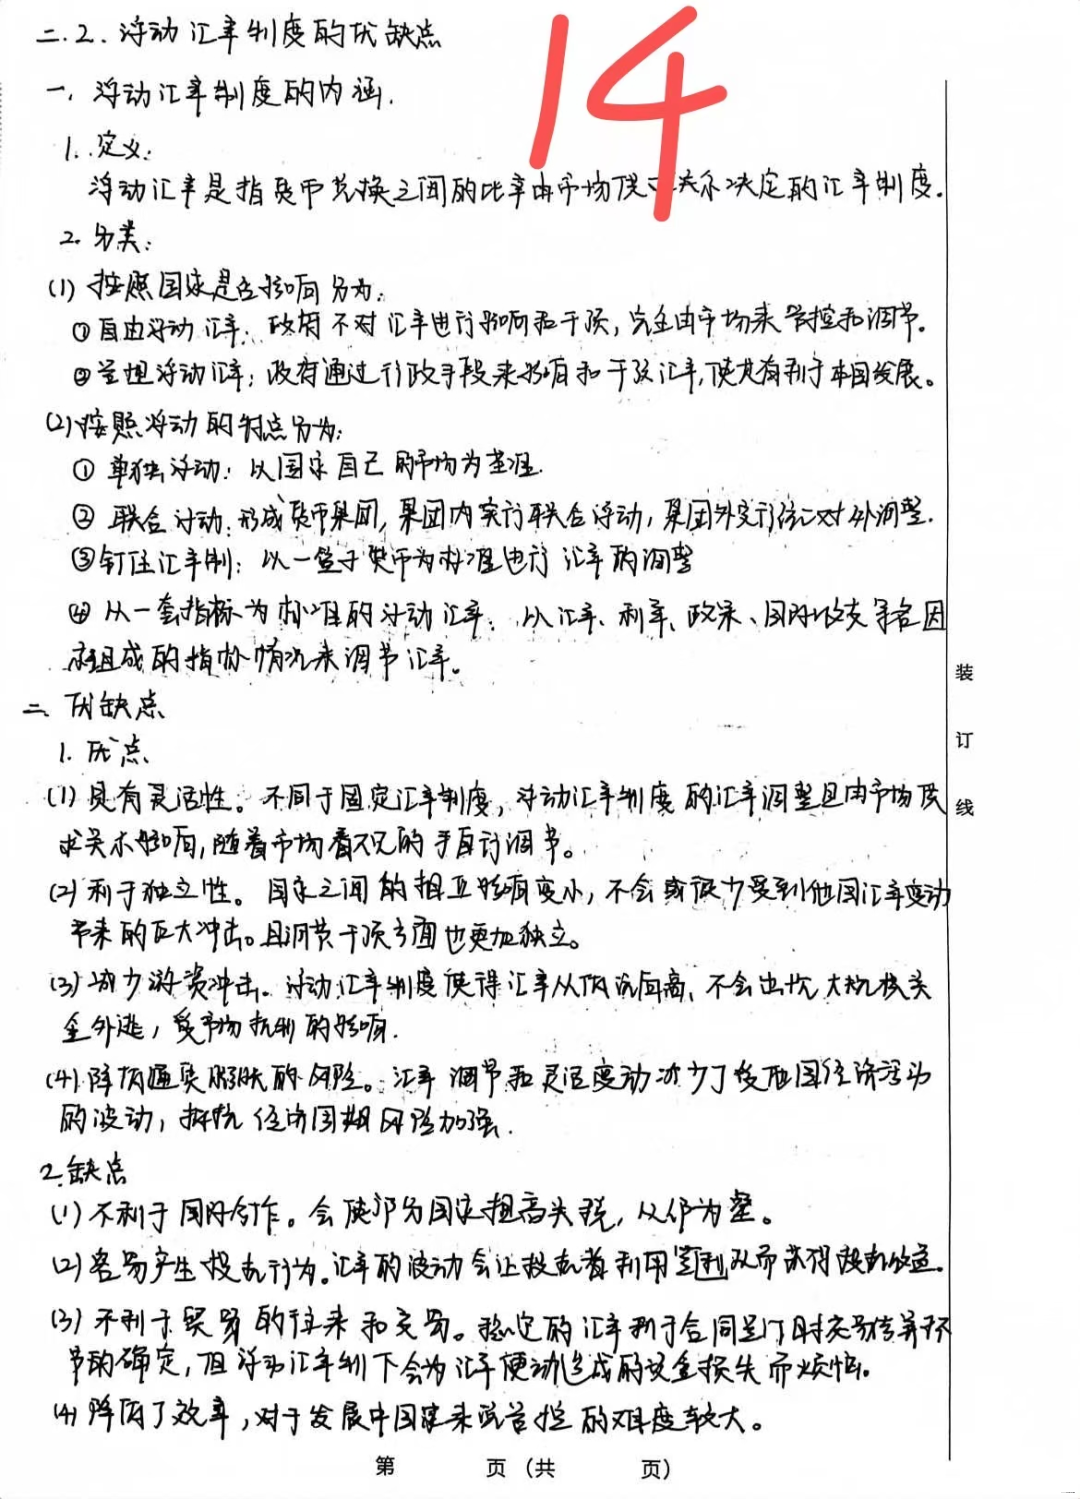 二.2.浮动汇率制度的优缺点
14
一、浮动汇率制度的内涵.
1.定义:
浮动汇率是指货币兑换之间的比率由市场供求关系决定的汇率制度.
2.分类:
(1)按照国家是否影响分为:
①自由浮动汇率:政府不对汇率进行影响和干预,完全由市场来管控和调节.
②管理浮动汇率:政府通过行政手段来影响和干预汇率,使其有利于本国发展。
(2)按照浮动的特点分为:
①单独浮动:以国家自己的市场为基准.
②联合浮动:形成货币集团,集团内实行联合浮动,集团外实行统一对外调整.
③钉住汇率制:以一篮子货币为标准进行汇率的调整
④以一套指标为标准的浮动汇率:以汇率、利率、政策、国际收支等各因
素组成的指标情况来调节汇率。
二、优缺点
1.优点
(1)具有灵活性。不同于固定汇率制度,浮动汇率制度的汇率调整是由市场供
求关系影响,随着市场看不见的手自行调节。
(2)利于独立性。国家之间的相互影响变小,不会或很少受到他国汇率变动
带来的巨大冲击。且调节干预方面也更加独立。
(3)减少游资冲击。浮动汇率制度使得汇率从低流向高,不会出现大规模资
金外逃,受市场机制的影响.
(4)降低通货膨胀的风险。汇率调节和灵活变动减少了受他国经济活动
的波动,抵抗经济周期风险加强.
2.缺点
(1)不利于国际合作。会使部分国家提高关税,以邻为壑。
(2)容易产生投机行为。汇率的波动会让投机者利用套利从而获得投机收益.
(3)不利于贸易的往来和交易。稳定的汇率利于合同签订时交易结算环
节的确定,但浮动汇率制下会为汇率变动造成的资金损失而烦恼。
(4)降低了效率,对于发展中国家来说管控的难度较大。
装
订
线
第 页(共 页)